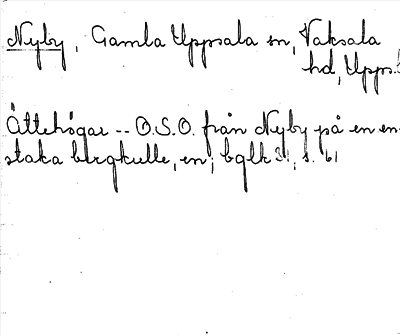 Nyby, Gamla Uppsala sn, Vaksala
hd, Upps.
Ättehögar -- O.S.O. från Nyby på en en-
staka bergkulle, en; bglk 31, s. 61